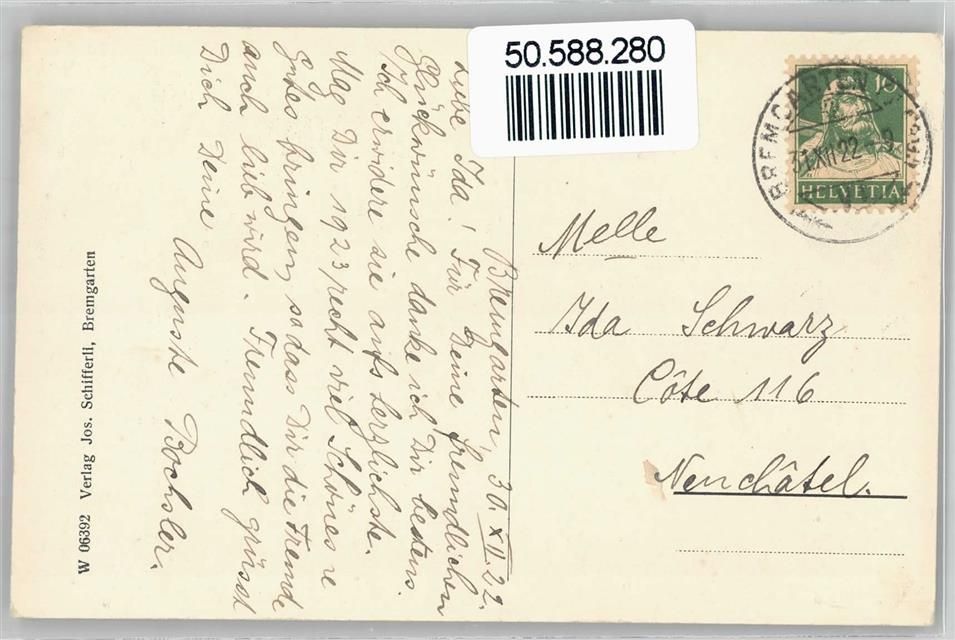 50.588.280
BREMGARTEN
31.XII.22
10
HELVETIA
Bremgarten, 30. XII. 22.
Liebe Ida! Für Deine freundlichen
Glückwünsche danke ich Dir bestens.
Ich erwidere sie aufs herzlichste.
Mög Dir 1923 recht viel Schönes u
Gutes bringen, so dass Dir die Fremde
auch lieb wird. Freundlich grüsst
Dich Deine
Auguste Bochsler.
Melle
Ida Schwarz
Côte 116
Neuchâtel.
W 06392 Verlag Jos. Schifferli, Bremgarten